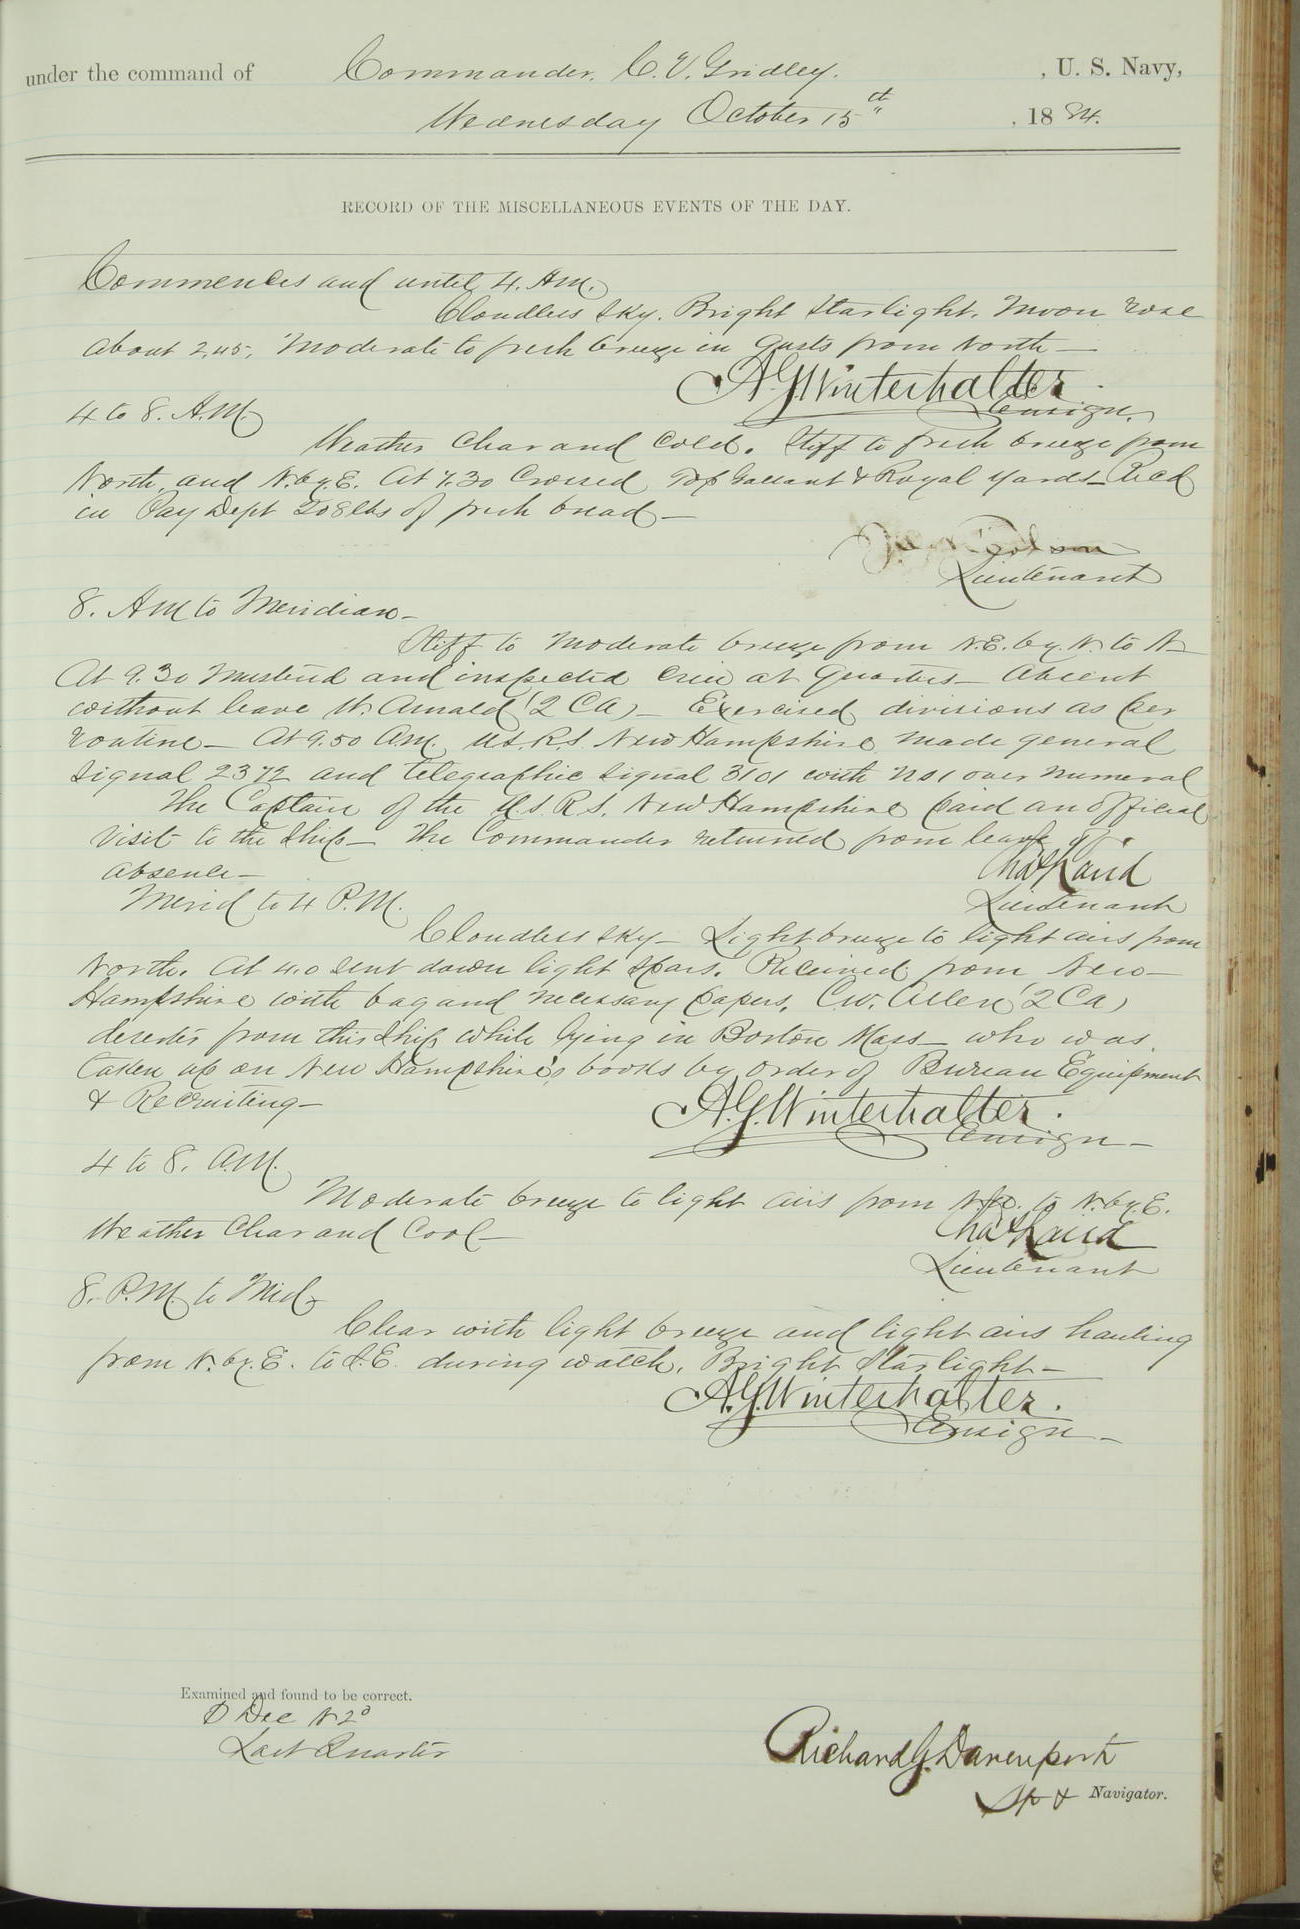 under the command of Commander. C. V. Gridley. , U. S. Navy,
Wednesday October 15th , 1884.
RECORD OF THE MISCELLANEOUS EVENTS OF THE DAY.
Commences and until 4. AM.
Cloudless Sky. Bright Starlight. Moon rose
about 2.45, Moderate to fresh breeze in gusts from North—
A.G. Winterhalter.
Ensign.
4 to 8. A.M.
Weather Clear and Cold. Stiff to fresh breeze from
North, and N.by.E. At 7.30 Crossed Top Gallant & Royal Yards— Recd
in Pay Dept 208 lbs of fresh bread—
Lieutenant
8. AM to Meridian—
Stiff to Moderate breeze from N.E. by. N. to N—
At 9.30 Mustered and inspected Crew at Quarters— Absent
without leave W. Arnald (2 CA)— Exercised divisions as per
routine— At 9.50 AM. U.S.R.S. New Hampshire made general
signal 2372 and telegraphic signal 3101 with No 1 over numeral
The Captain of the U.S.R.S. New Hampshire paid an official
Visit to the Ship— The Commander returned from leave of
absence—
Chas Laird
Lieutenant
Merid to 4 P.M.
Cloudless Sky— Light breeze to light airs from
North. At 4.0 Sent down light Spars. Received from New—
Hampshire with bag and necessary papers, C.W. Allen (2 Ca)
deserter from this Ship while lying in Boston Mass— who was
taken up on New Hampshire's books by order of Bureau Equipment
& Recruiting—
A.G. Winterhalter.
Ensign—
4 to 8. A.M.
Moderate breeze to light airs from to N.by.E.
Weather Clear and Cool—
Chas Laird
Lieutenant
8. P.M to Mid.
Clear with light breeze and light airs hauling
from N. by. E. to S.E. during watch. Bright Starlight—
A.G. Winterhalter.
Ensign—
Examined and found to be correct.
Dec N 20
Last Quarter
Richard G. Davenport
Navigator.